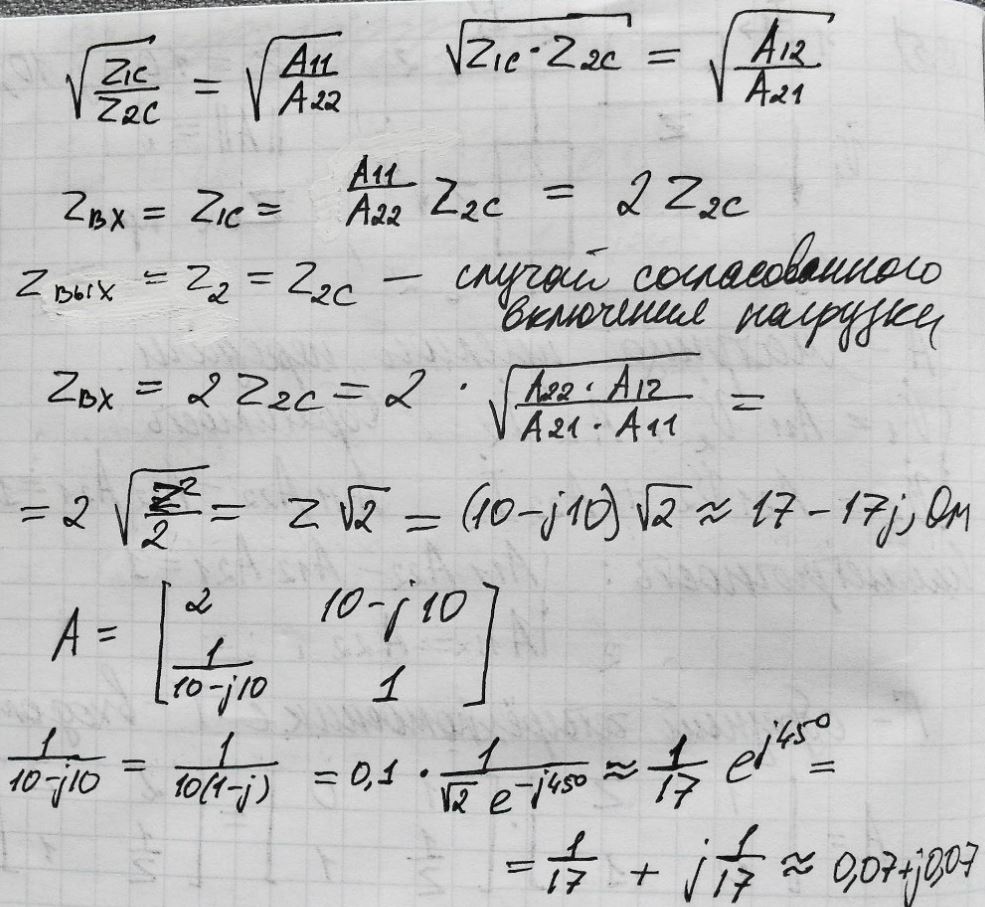 √(Z1C/Z2C) = √(A11/A22)   √(Z1C · Z2C) = √(A12/A21)
Zвх = Z1C = A11/A22 Z2C = 2 Z2C
Zвых = Z2 = Z2C — случай согласованного
включения нагрузки
Zвх = 2 Z2C = 2 · √(A22 · A12 / A21 · A11) =
= 2 √(Z²/2) = Z√2 = (10-j10)√2 ≈ 17 - 17j, Ом
A = [2   10-j10
1/(10-j10)   1]
1/(10-j10) = 1/(10(1-j)) = 0,1 · 1/(√2 e^(-j45°)) ≈ 1/17 e^(j45°) =
= 1/17 + j 1/17 ≈ 0,07+j0,07